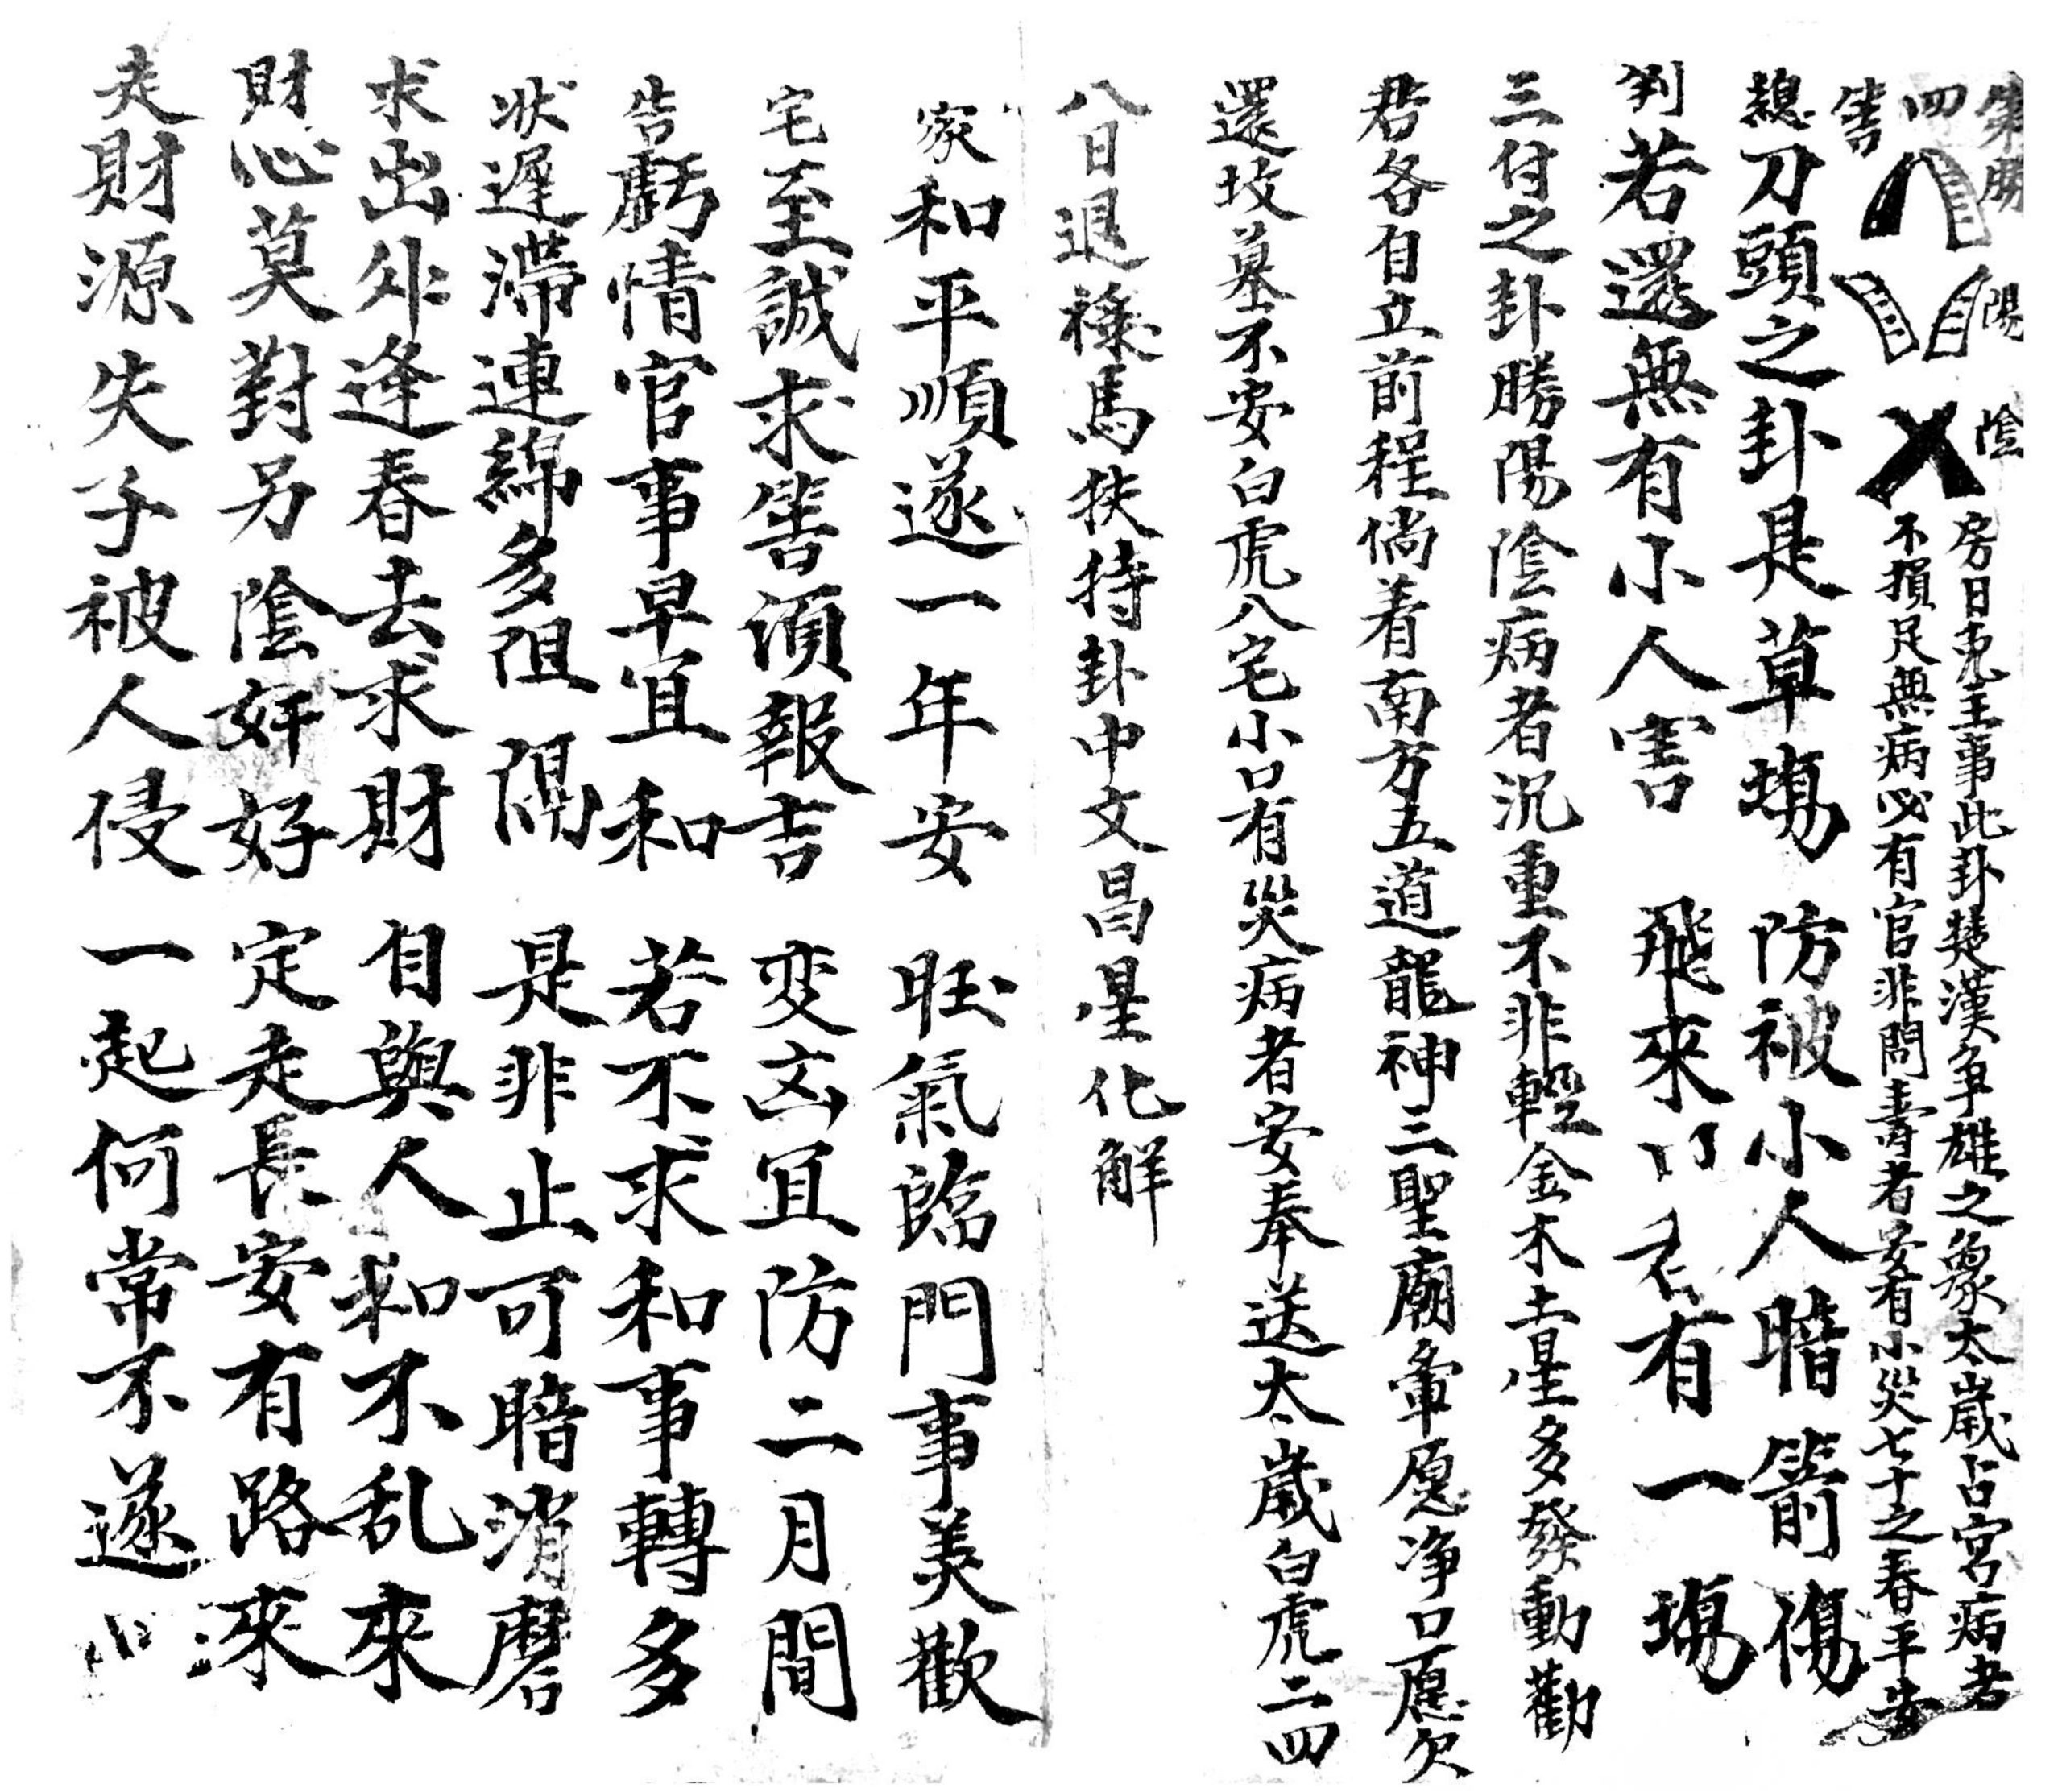 第四筶
勝 陽 陰
房日兎主事此卦楚漢争雄之象太歲占宮病者
不損足無病必有官非問壽者安有小災七十之春平安
総判
刀頭之卦是草塲 防被小人暗箭傷
若還無有小人害 飛來 有一塲
三付之卦勝陽陰病者沉重不非輕金木土星多發動勸
君各自立前程倘着南方五道龍神三聖廟㑹愿净口愿欠
還坟墓不安白虎八宅小口有災病者安奉送太歲白虎二四
八日退祿馬扶持卦中文昌星化解
家宅
和平順遂一年安 旺氣臨門事美歡
至誠求筶須報吉 变凶宜防二月間
告狀
虧情官事早宜和 若不求和事轉多
遲滯連綿多阻隔 是非止可暗消磨
求財
出外逢春去求財 自與人和不乱來
心莫對另陰奸好 定走長安有路來
走
財源失子被人侵 一起何常不遂心